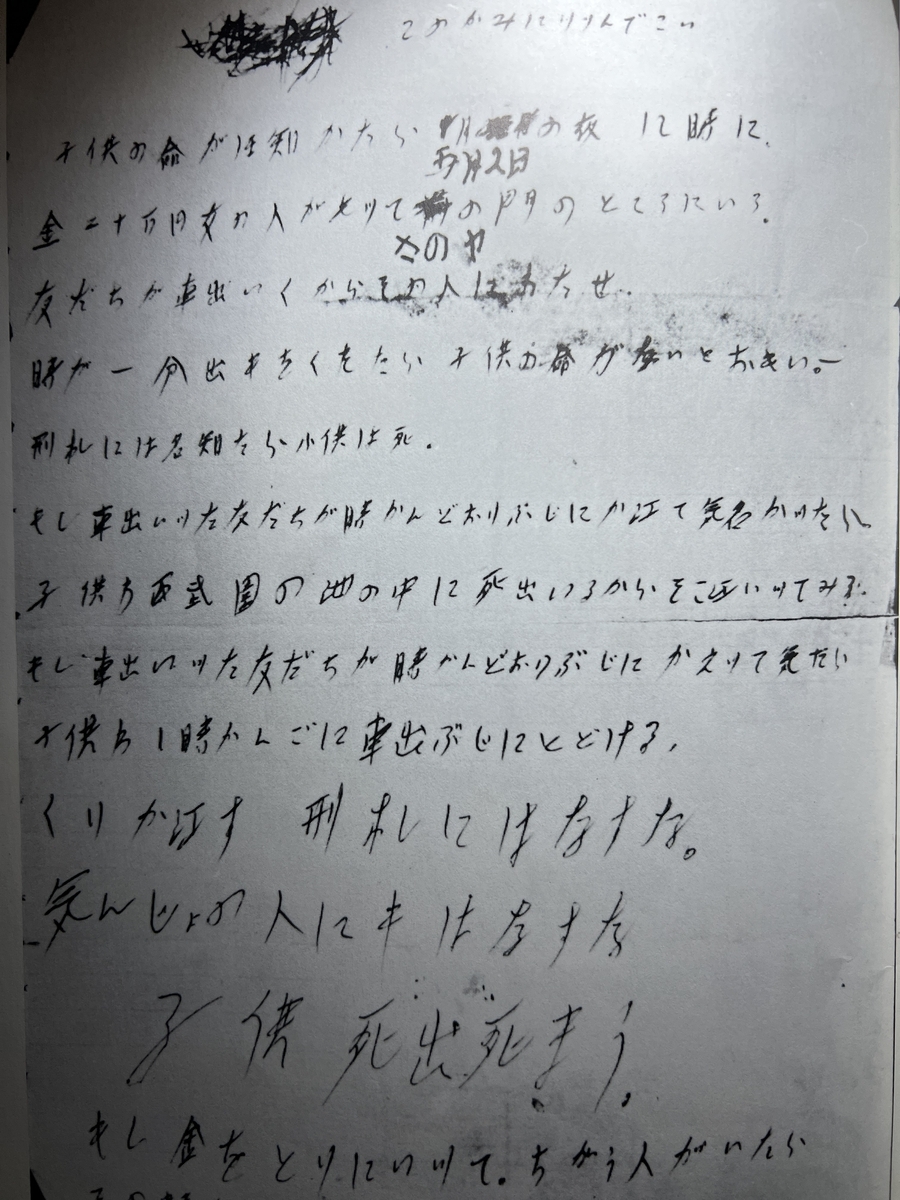 このかみにツツんでこい
子供の命がほ知かたら の夜 12時に、
五月2日
金二十万円女の人がもツて の門のところにいろ。
さのヤ
友だちが車出いくからその人にわたせ。
時が一分出もおくれたら子供の命がないとおもい。ー
刑札には名知たら小供は死。
もし車出いツた友だちが時かんどおりぶじにか江て気名かツたら
子供わ西武園の池の中に死出いるからそこほいツてみろ。
もし車出いツた友だちが時かんどおりぶじにかえツて気たら
子供わ1時かんごに車出ぶじにとどける、
くりか江す 刑札にはなすな。
気んじょの人にもはなすな
子供死出死まう。
もし金をとりにいツて。ちがう人がいたら